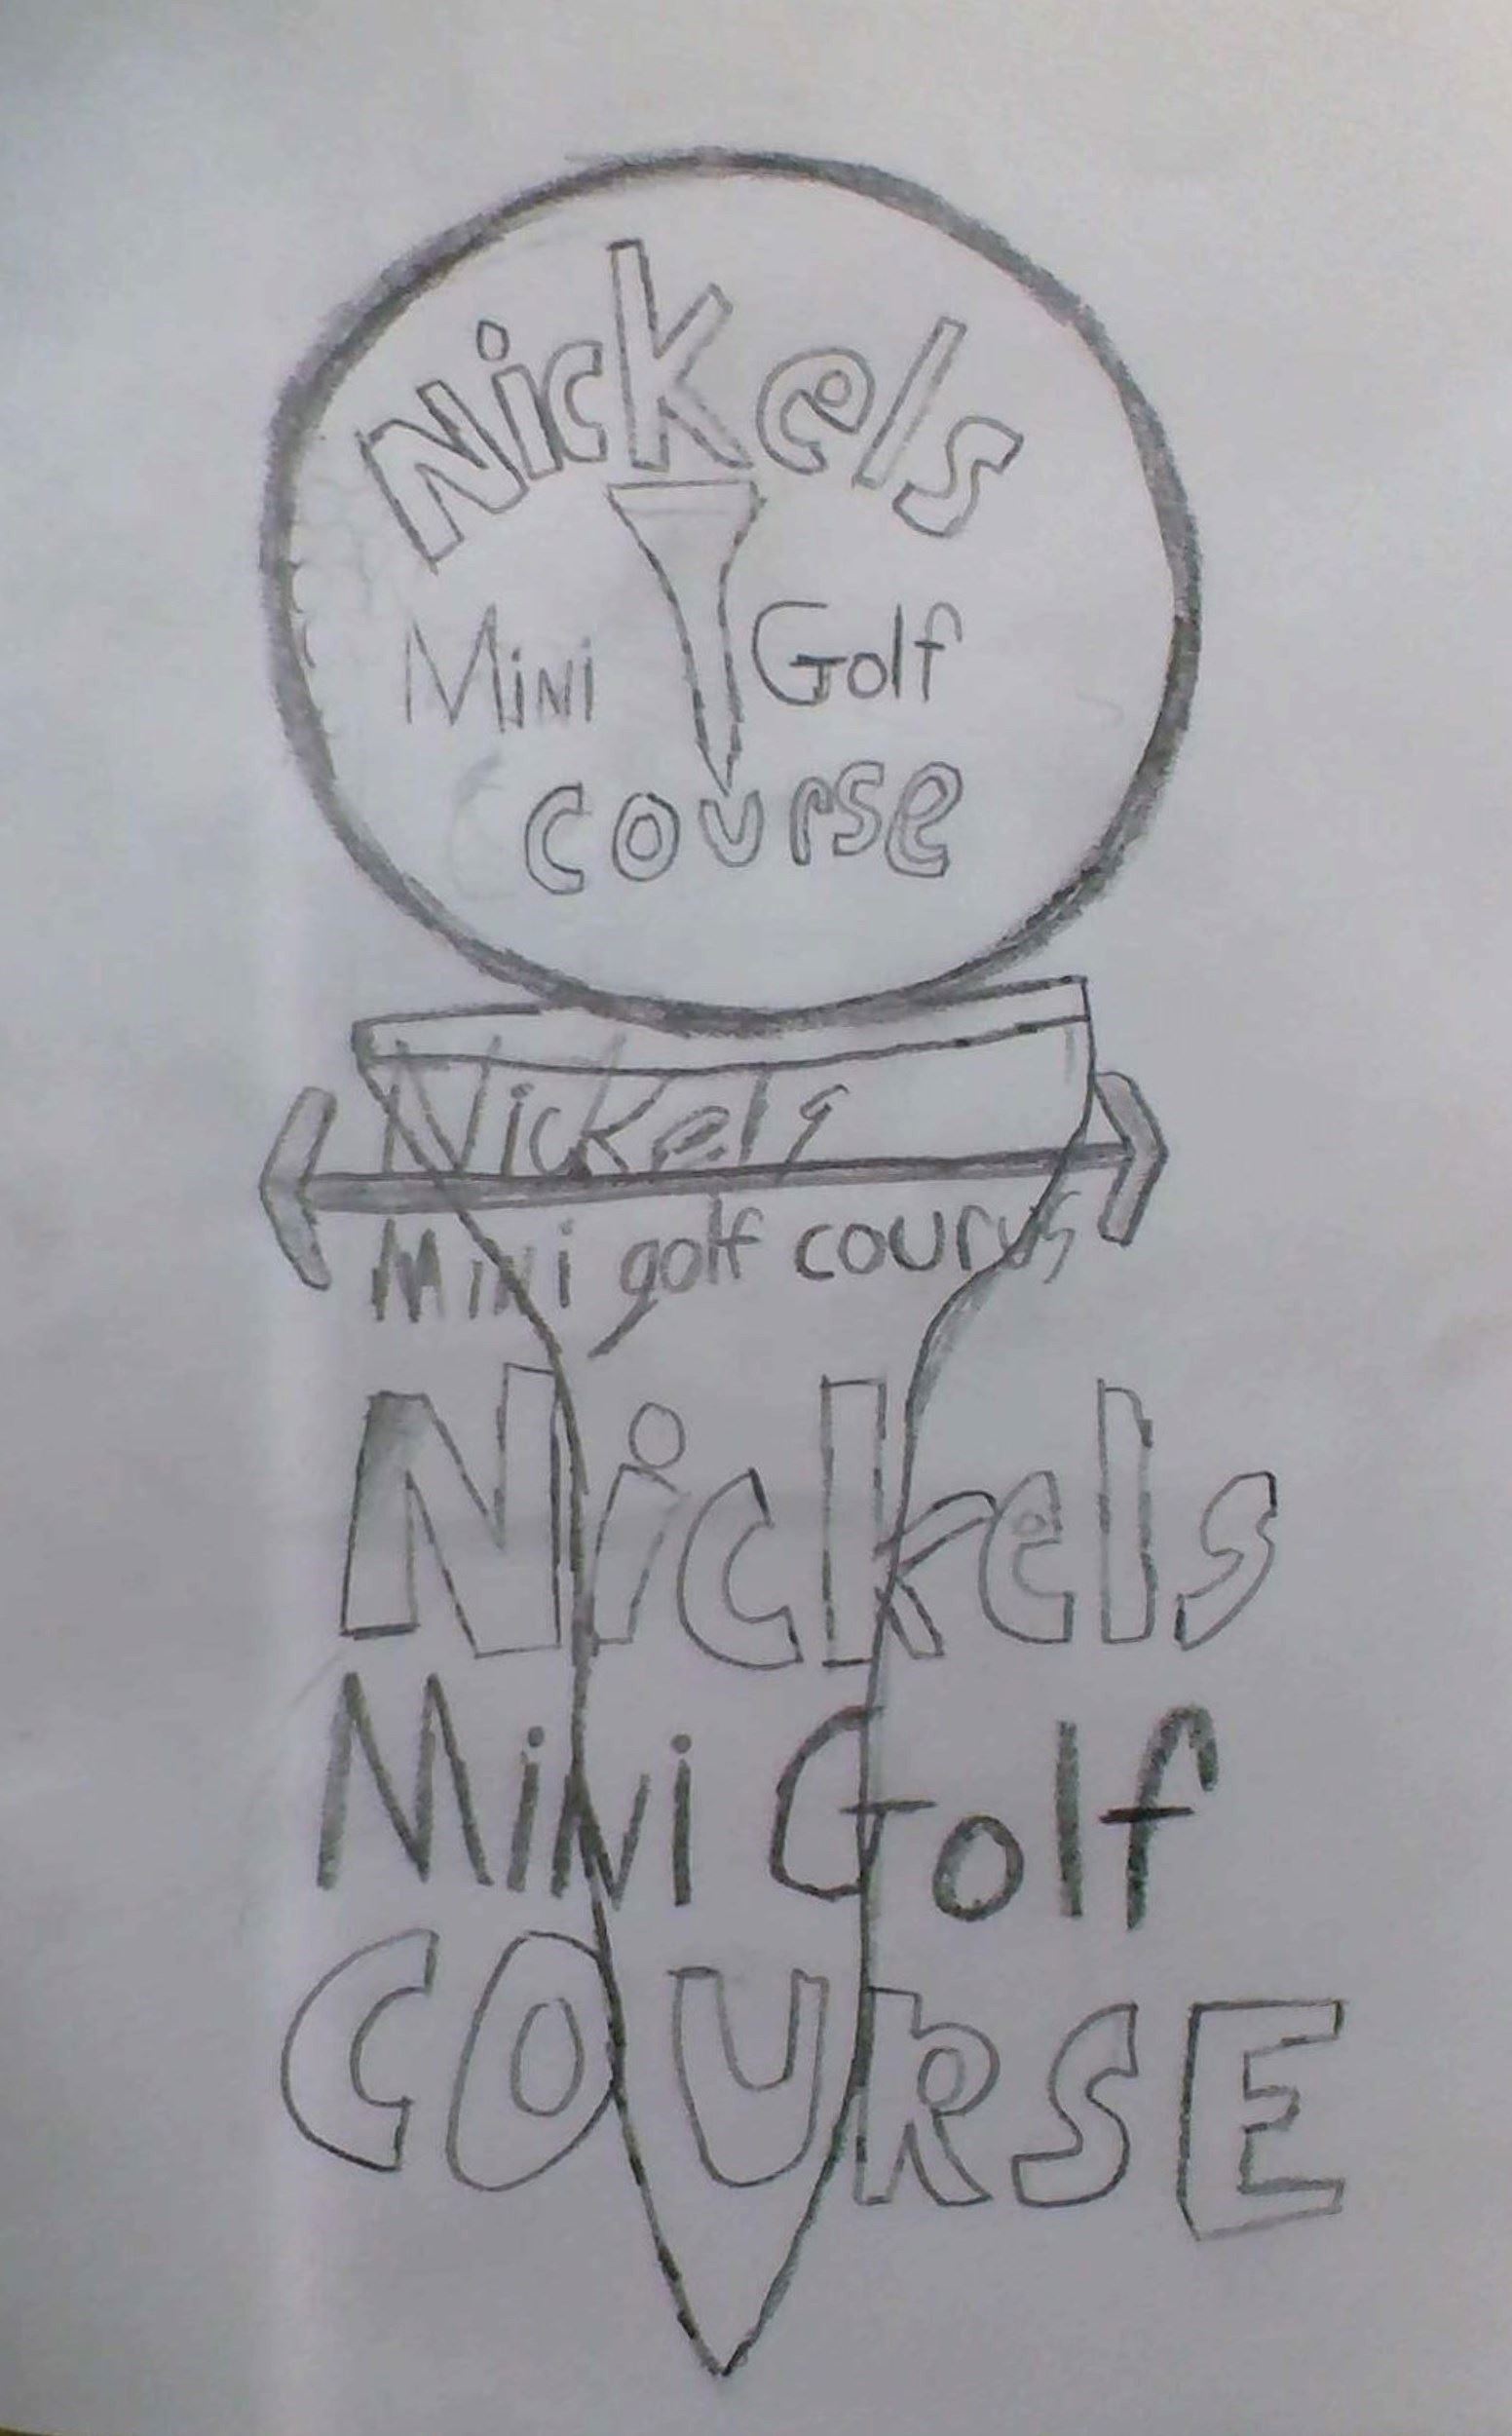 Nickels
Mini Golf
course
Nickels
Mini golf courus
Nickels
MiNi Golf
COURSE